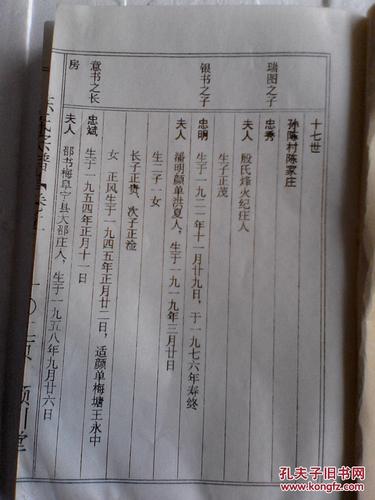 十七世
孙陈村陈家庄
瑞图之子
忠秀
夫人 殷氏烽火纪庄人
生子正茂
银书之子
忠明 生于一九二一年十一月廿九日，于一九七六年寿终
夫人 潘明颜单洪夏人，生于一九一九年三月廿日
生二子一女
长子正贵、次子正沧
女 正风生于一九四五年正月廿二日，适颜单梅塘王永中
意书之长
忠斌 生于一九五四年正月十一日
房
夫人 邵书梅阜宁县大邵庄人，生于一九五八年九月廿六日
孔夫子旧书网
www.kongfz.com